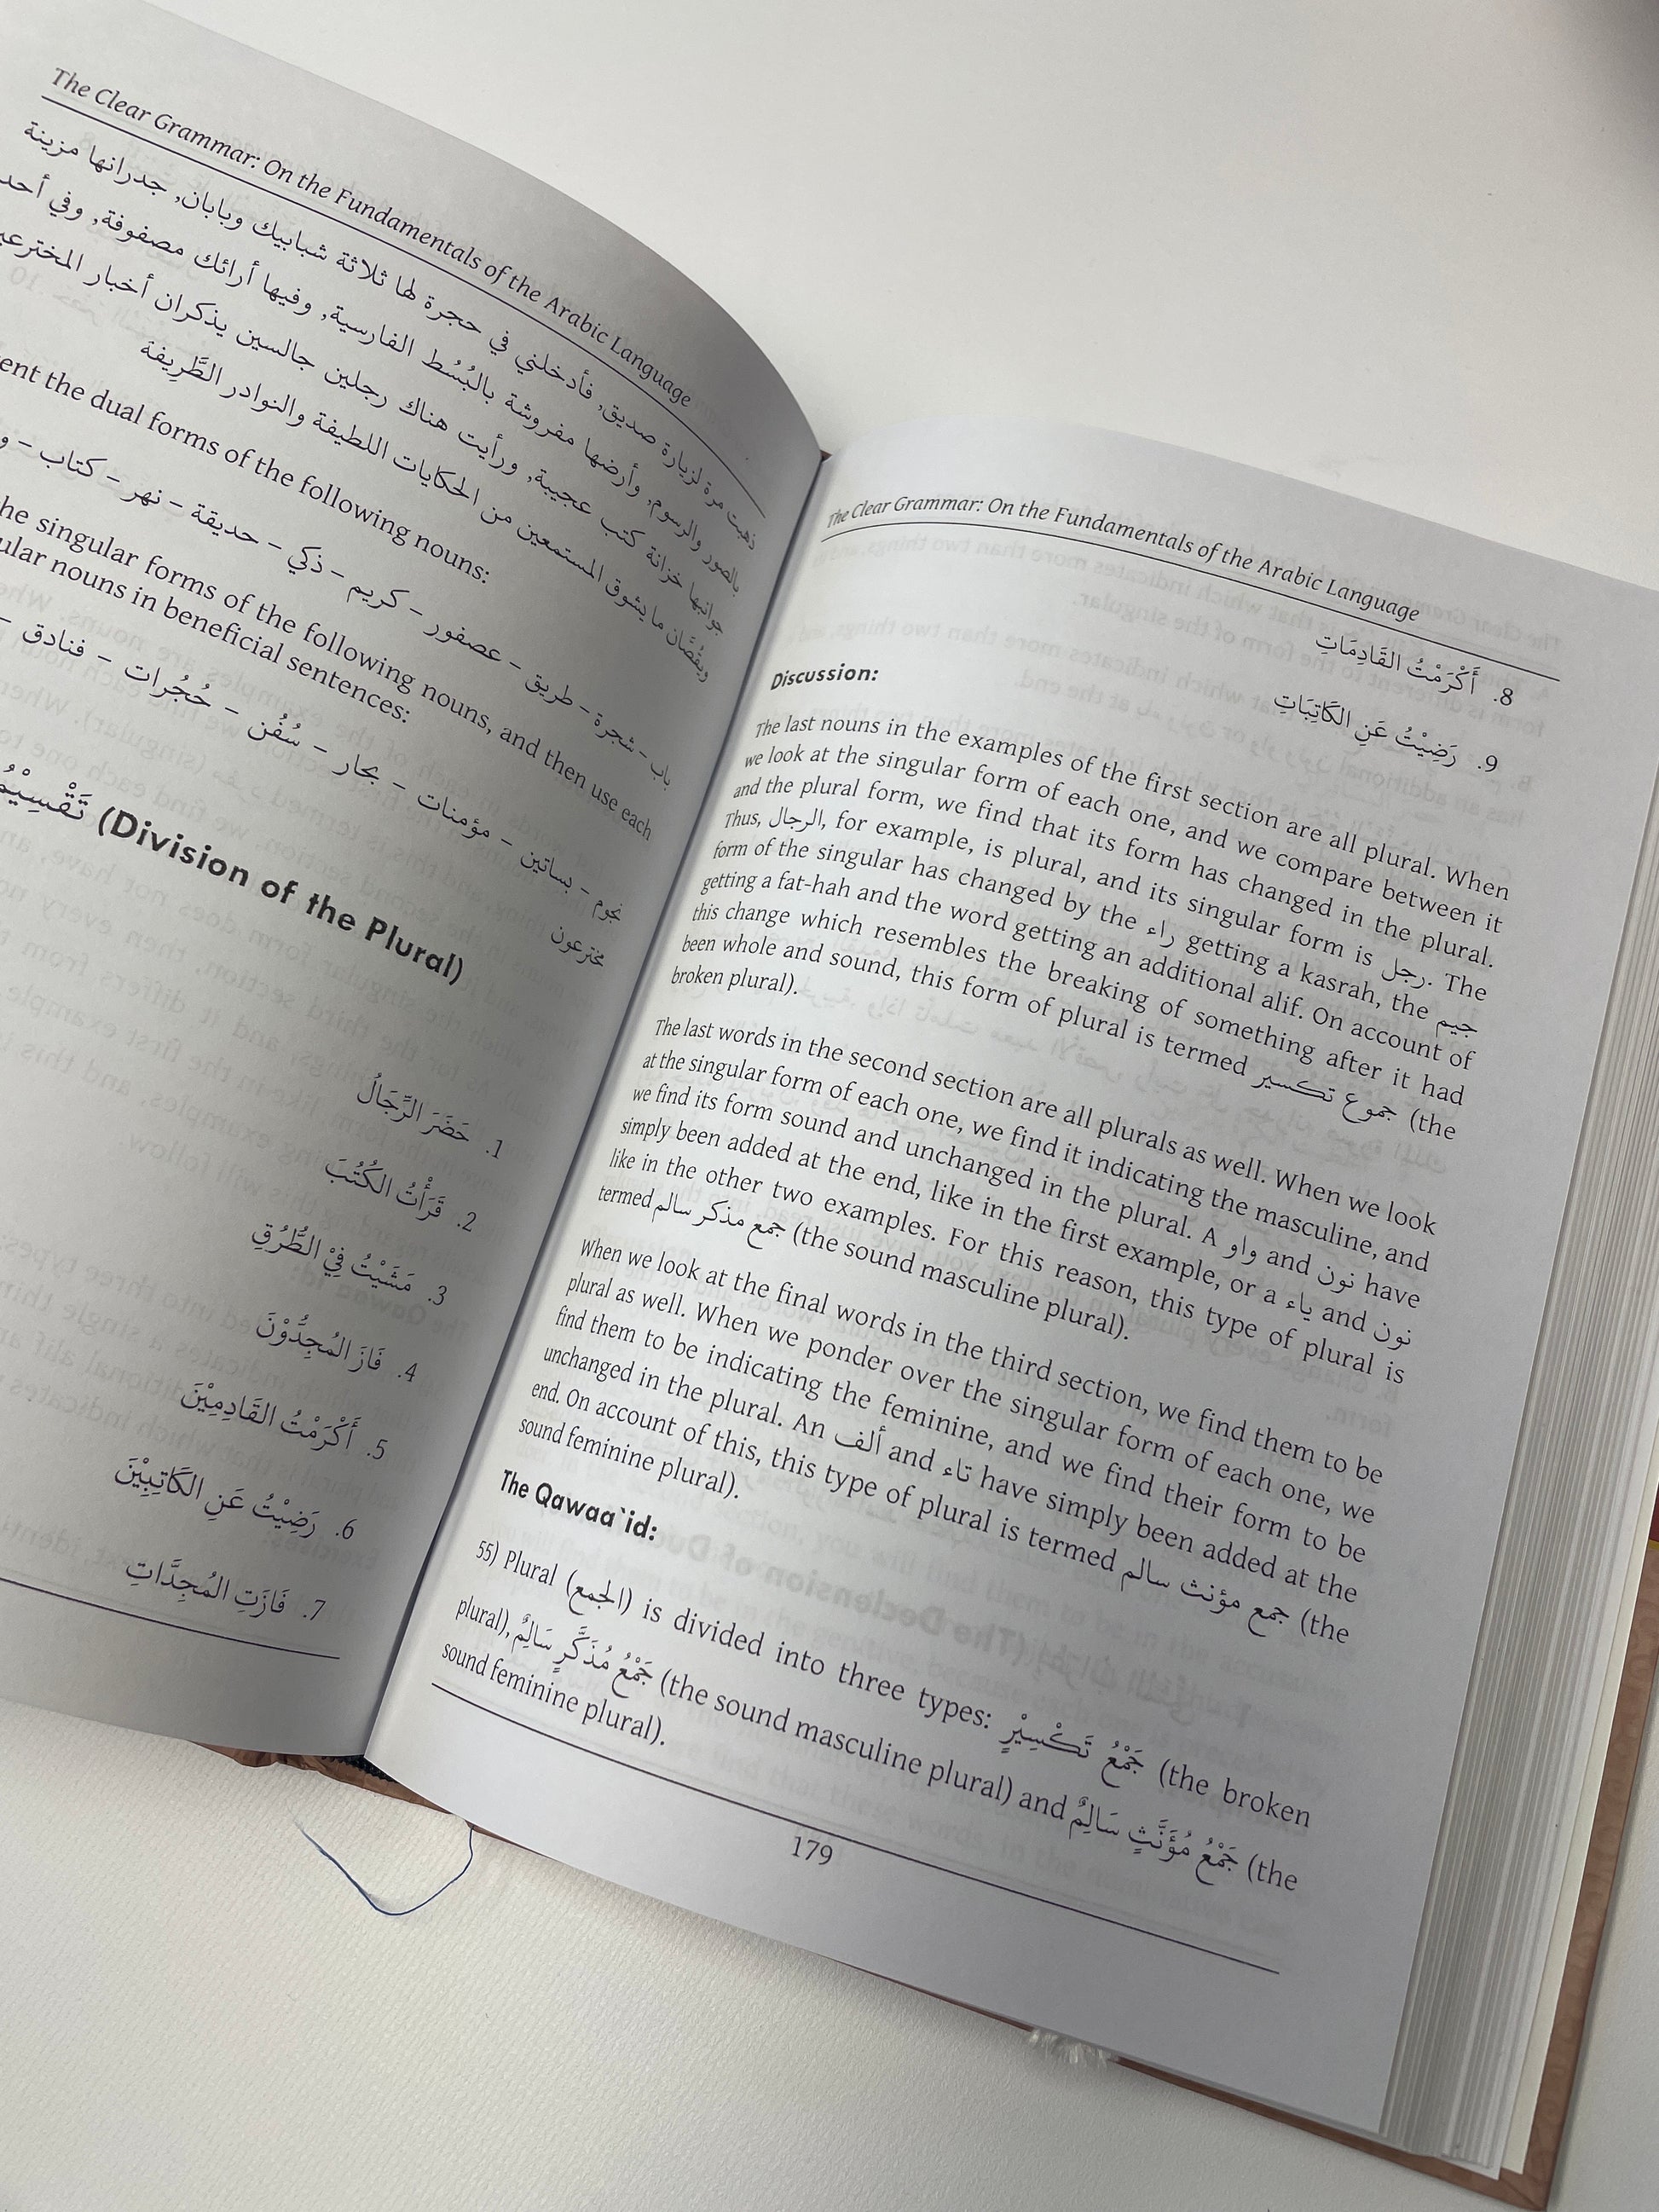 The Clear Grammar: On the Fundamentals of the Arabic Language
ذهبت مرة لزيارة صديق, فأدخلني في حجرة لها ثلاثة شبابيك وبابان, جدرانها مزينة
بالصور والرسوم, وأرضها مفروشة بالبُسُط الفارسية, وفيها أرائك مصفوفة, وفي
جوانبها خزانة كتب عجيبة, ورأيت هناك رجلين جالسين يذكران أخبار
ويقُصَّان ما يشوق المستمعين من الحكايات اللطيفة والنوادر الطَّرِيفة
the dual forms of the following nouns:
باب – شجرة – طريق – عصفور – كريم – ذكي – حديقة – نهر – كتاب –
the singular forms of the following nouns, and then use each
nouns in beneficial sentences:
نجوم – بساتين – مؤمنات – بحار – سُفُن – حُجُرات – فنادق –
مخترعون
(Division of the Plural)
1. حَضَرَ الرِّجَالُ
2. قَرَأْتُ الكُتُبَ
3. مَشَيْتُ فِيْ الطُّرُقِ
4. فَازَ المُجِدُّوْنَ
5. أَكْرَمْتُ القَادِمِيْنَ
6. رَضِيْتُ عَنِ الكَاتِبِيْنَ
7. فَازَتِ المُجِدَّاتِ
The Clear Grammar: On the Fundamentals of the Arabic Language
8. أَكْرَمْتُ القَادِمَاتِ
9. رَضِيْتُ عَنِ الكَاتِبَاتِ
Discussion:
The last nouns in the examples of the first section are all plural. When
we look at the singular form of each one, and we compare between it
and the plural form, we find that its form has changed in the plural.
Thus, الرجال, for example, is plural, and its singular form is رجل. The
form of the singular has changed by the راء getting a kasrah, the جيم
getting a fat-hah and the word getting an additional alif. On account of
this change which resembles the breaking of something after it had
been whole and sound, this form of plural is termed جموع تكسير (the
broken plural).
The last words in the second section are all plurals as well. When we look
at the singular form of each one, we find it indicating the masculine, and
we find its form sound and unchanged in the plural. A واو and نون have
simply been added at the end, like in the first example, or a ياء and نون
like in the other two examples. For this reason, this type of plural is
termed جمع مذكر سالم (the sound masculine plural).
When we look at the final words in the third section, we find them to be
plural as well. When we ponder over the singular form of each one, we
find them to be indicating the feminine, and we find their form to be
unchanged in the plural. An ألف and تاء have simply been added at the
end. On account of this, this type of plural is termed جمع مؤنث سالم (the
sound feminine plural).
The Qawaa`id:
55) Plural (الجمع) is divided into three types: جَمْعُ تَكْسِيْرٍ (the broken
plural), جَمْعُ مُذَكَّرٍ سَالِمٌ (the sound masculine plural) and جَمْعُ مُؤَنَّثٍ سَالِمٌ (the
sound feminine plural).
179